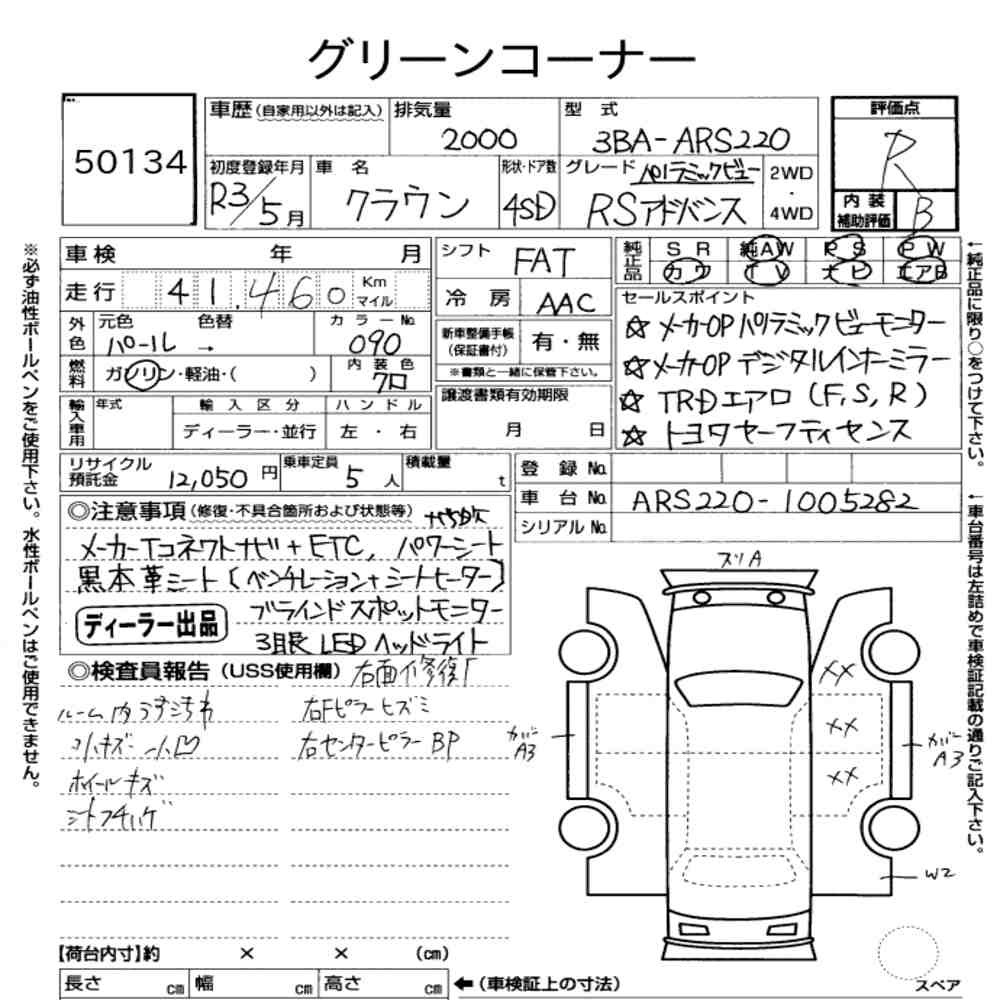 グリーンコーナー
50134
車歴 (自家用以外は記入) 排気量 2000 型式 3BA-ARS220
初度登録年月 R3/5月 車名 クラウン 形状・ドア数 4SD グレード パノラミックビュー RSアドバンス 2WD ・ 4WD
評価点 R
内装補助評価 B
車検 年 月
走行 41,460 Km マイル
外色 元色 パール → 色替 カラーNo. 090
燃料 ガソリン・軽油・( ) 内装色 クロ
輸入車用 年式 輸入区分 ディーラー・並行 ハンドル 左・右
シフト FAT
冷房 AAC
新車整備手帳 (保証書付) 有・無
※書類と一緒に保管下さい。
譲渡書類有効期限
月 日
純正品 SR 純AW PS PW
カワ TV ナビ エアB
セールスポイント
☆ メーカOP パノラミックビューモニター
☆ メーカOP デジタルインナーミラー
☆ TRDエアロ (F,S,R)
☆ トヨタセーフティセンス
リサイクル預託金 12,050円 乗車定員 5人 積載量 t
登録No.
車台No. ARS220-1005282
シリアルNo.
◎注意事項 (修復・不具合箇所および状態等)
メーカーTコネクトナビ+ETC, パワーシート
黒本革シート (ベンチレーション+シートヒーター)
ブラインドスポットモニター
ディーラー出品
3眼LEDヘッドライト
◎検査員報告 (USS使用欄) 右面修復
ルーム内うすごれ
小キズ 小凹
ホイールキズ
シートフチハゲ
右Fピラーヒズミ
右センターピラー BP
スリA
カバー A3
XX
XX
XX
カバー A3
W2
スペア
【荷台内寸】約 × × (cm)
長さ cm 幅 cm 高さ cm ←(車検証上の寸法)
※必ず油性ボールペンをご使用下さい。水性ボールペンはご使用できません。
←純正品に限り○をつけて下さい。
←車台番号は左詰めで車検証記載の通りご記入下さい。